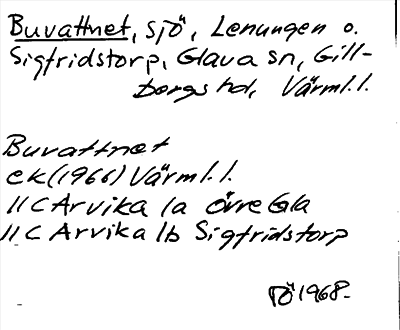 Buvattnet, sjö, Lenungen o.
Sigfridstorp, Glava sn, Gill-
bergs hd, Värml. l.
Buvattnet
ek (1966) Värml. l.
11 C Arvika 1a Övre Gla
11 C Arvika 1b Sigfridstorp
1968.